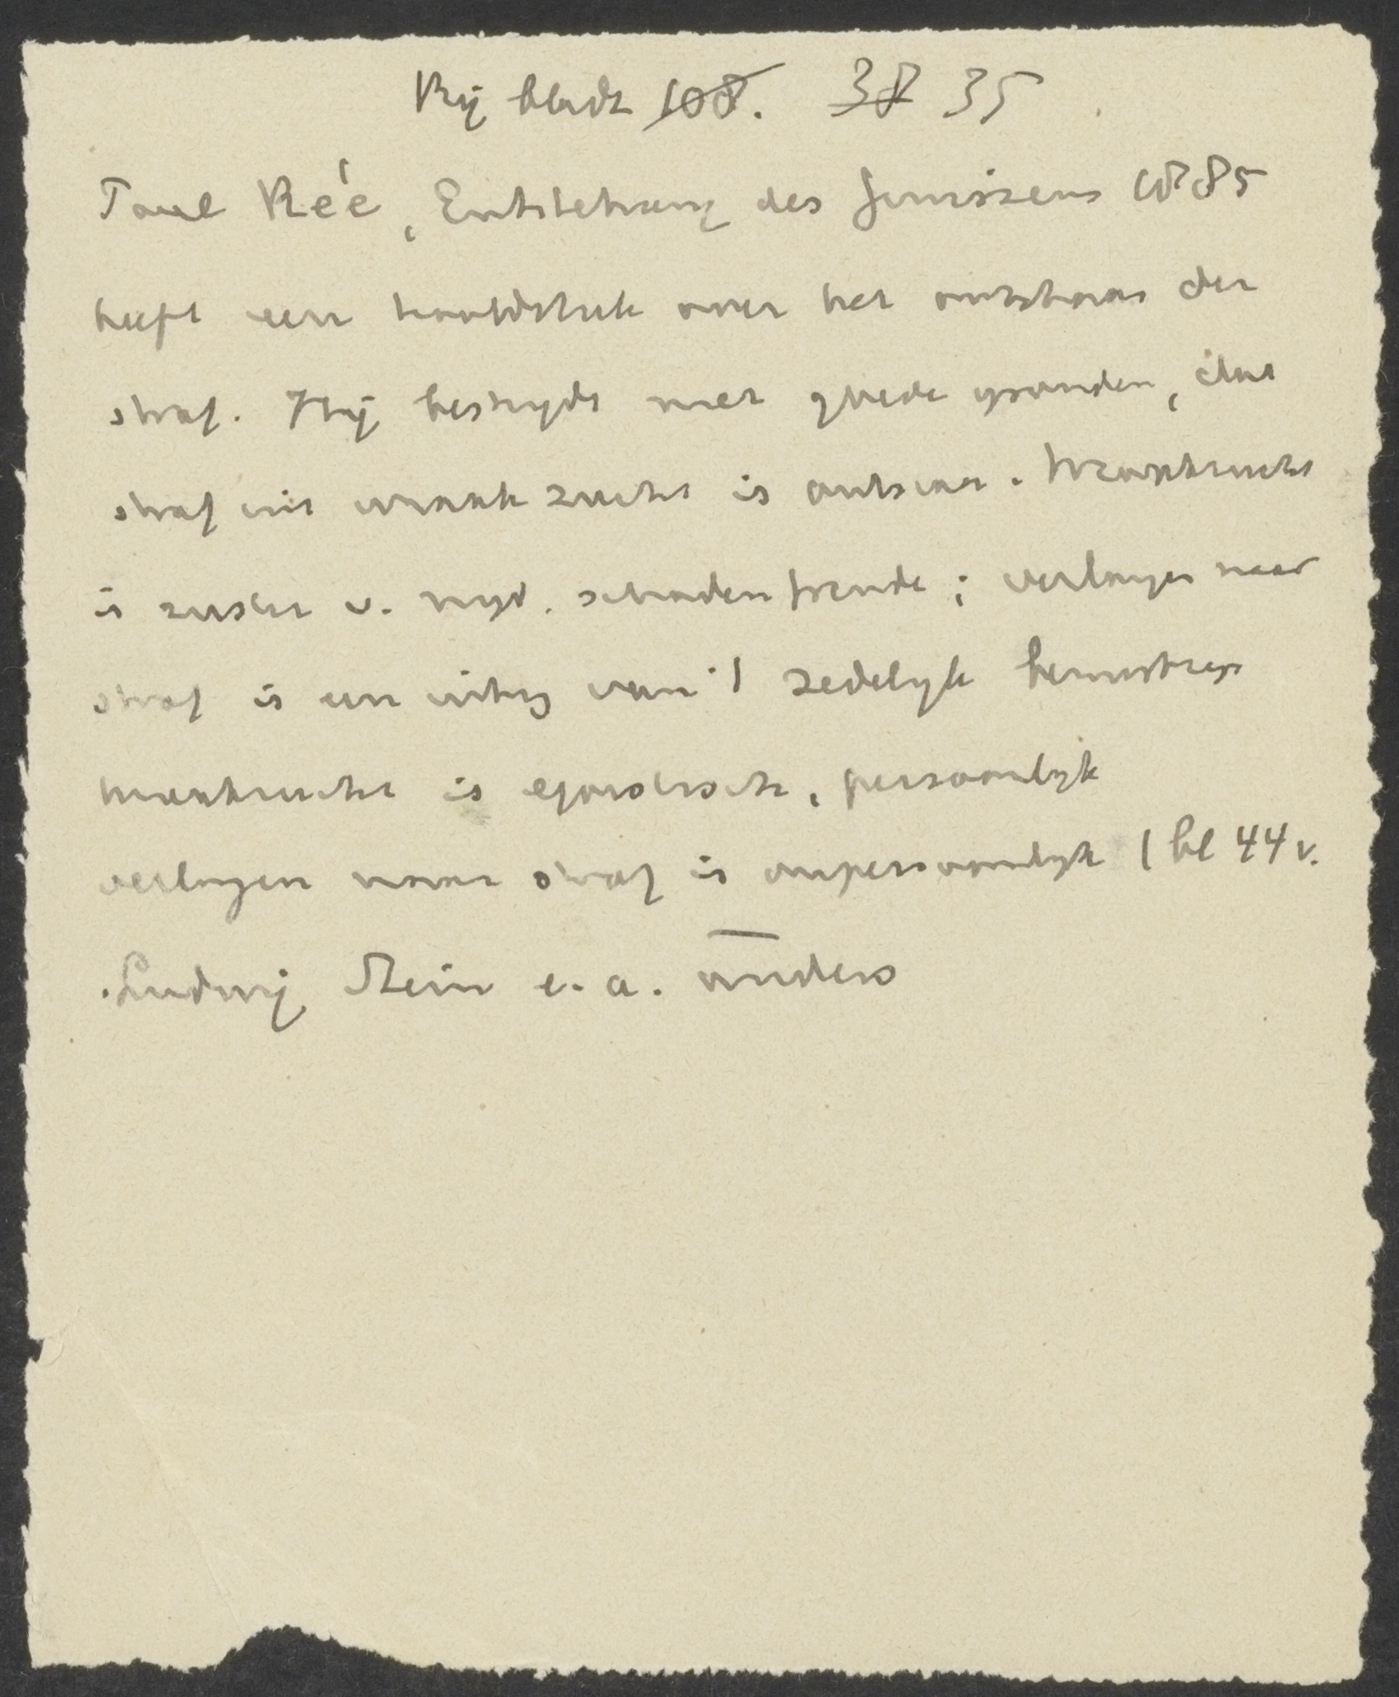 Bij bladz 108. 38 35
Paul Rée, Entstehung des Gewissens 1885
heeft een hoofdstuk over het ontstaan der
straf. Hij bestrydt met goede gronden, dat
straf uit wraakzucht is ontstaan. Wraakzucht
is zuster v. nyd. schadenfreude; verlangen naar
straf is een uiting van 't zedelyk bewustzyn
wraakzucht is egoistisch, persoonlyk
verlangen naar straf is onpersoonlyk (bl 44 v.
Ludwig Stein e. a. anders